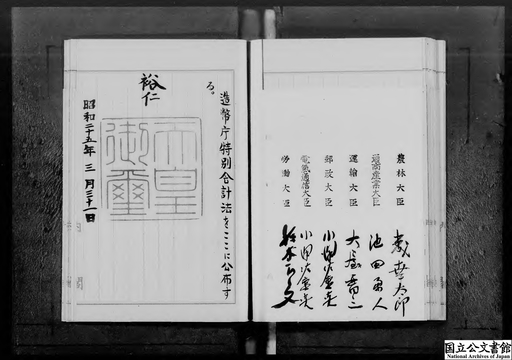 農林大臣
通商産業大臣 池田勇人
運輸大臣 大屋晋三
郵政大臣 小沢佐重喜
電気通信大臣 小沢佐重喜
労働大臣 鈴木正文
造幣庁特別会計法をここに公布す
る。
裕仁
天皇
御璽
昭和二十五年三月三十一日
国立公文書館
National Archives of Japan